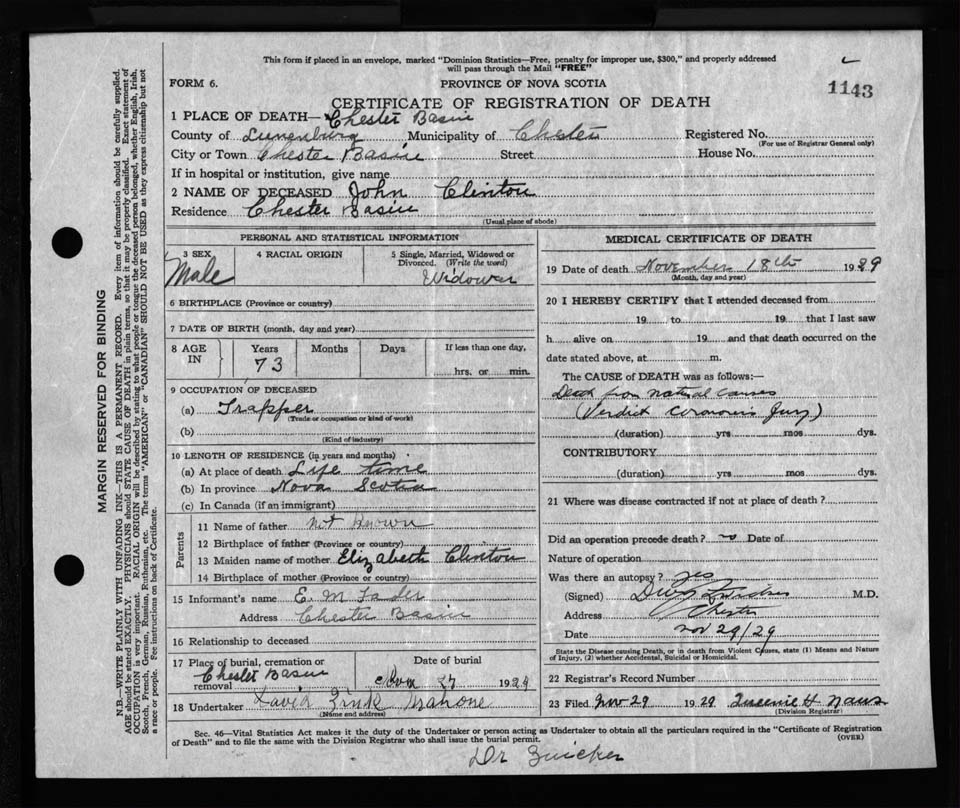 This form if placed in an envelope, marked "Dominion Statistics—Free, penalty for improper use, $300," and properly addressed
will pass through the Mail "FREE"
FORM 6.
PROVINCE OF NOVA SCOTIA
1143
CERTIFICATE OF REGISTRATION OF DEATH
1 PLACE OF DEATH—Chester Basin
County of Lunenburg Municipality of Chester Registered No.
(For use of Registrar General only)
City or Town Chester Basin Street House No.
If in hospital or institution, give name
2 NAME OF DECEASED John Clinton
Residence Chester Basin
(Usual place of abode)
PERSONAL AND STATISTICAL INFORMATION
3 SEX
Male
4 RACIAL ORIGIN
5 Single, Married, Widowed or
Divorced. (Write the word)
Widower
6 BIRTHPLACE (Province or country)
7 DATE OF BIRTH (month, day and year)
8 AGE
IN
Years
73
Months
Days
If less than one day,
hrs. or min.
9 OCCUPATION OF DECEASED
(a) Trapper
(Trade or occupation or kind of work)
(b)
(Kind of industry)
10 LENGTH OF RESIDENCE (in years and months)
(a) At place of death Life time
(b) In province Nova Scotia
(c) In Canada (if an immigrant)
Parents
11 Name of father not Known
12 Birthplace of father (Province or country)
13 Maiden name of mother Elizabeth Clinton
14 Birthplace of mother (Province or country)
15 Informant's name E. M Fader
Address Chester Basin
16 Relationship to deceased
17 Place of burial, cremation or
removal Chester Basin
Date of burial
Nov 27 1929
18 Undertaker David Zink Mahone
(Name and address)
MEDICAL CERTIFICATE OF DEATH
19 Date of death November 18th 1929
(Month, day and year)
20 I HEREBY CERTIFY that I attended deceased from
19 to 19 that I last saw
h alive on 19 and that death occurred on the
date stated above, at m.
The CAUSE of DEATH was as follows:—
Dead from natural causes
(Verdict Coroner's Jury)
(duration) yrs mos dys.
CONTRIBUTORY
(duration) yrs mos dys.
21 Where was disease contracted if not at place of death?
Did an operation precede death? no Date of
Nature of operation
Was there an autopsy? yes
(Signed) M.D.
Address Chester
Date Nov 29/29
State the Disease causing Death, or in death from Violent Causes, state (1) Means and Nature
of Injury, (2) whether Accidental, Suicidal or Homicidal.
22 Registrar's Record Number
23 Filed Nov 29 1929 Queenie H Naus
(Division Registrar)
Sec. 46—Vital Statistics Act makes it the duty of the Undertaker or person acting as Undertaker to obtain all the particulars required in the "Certificate of Registration
of Death" and to file the same with the Division Registrar who shall issue the burial permit.
(OVER)
Dr Zwicker
MARGIN RESERVED FOR BINDING
N.B.—WRITE PLAINLY WITH UNFADING INK—THIS IS A PERMANENT RECORD. Every item of information should be carefully supplied.
AGE should be stated EXACTLY. PHYSICIANS should STATE CAUSE OF DEATH in plain terms, so that it may be properly classified. Exact statement of
OCCUPATION is very important. RACIAL ORIGIN will be described by stating to what people or tongue the deceased person belonged, whether English, Irish,
Scotch, French, German, Russian, Ruthenian, etc. The terms "AMERICAN" or "CANADIAN" SHOULD NOT BE USED as they express citizenship but not
a race or people. See instructions on back of Certificate.